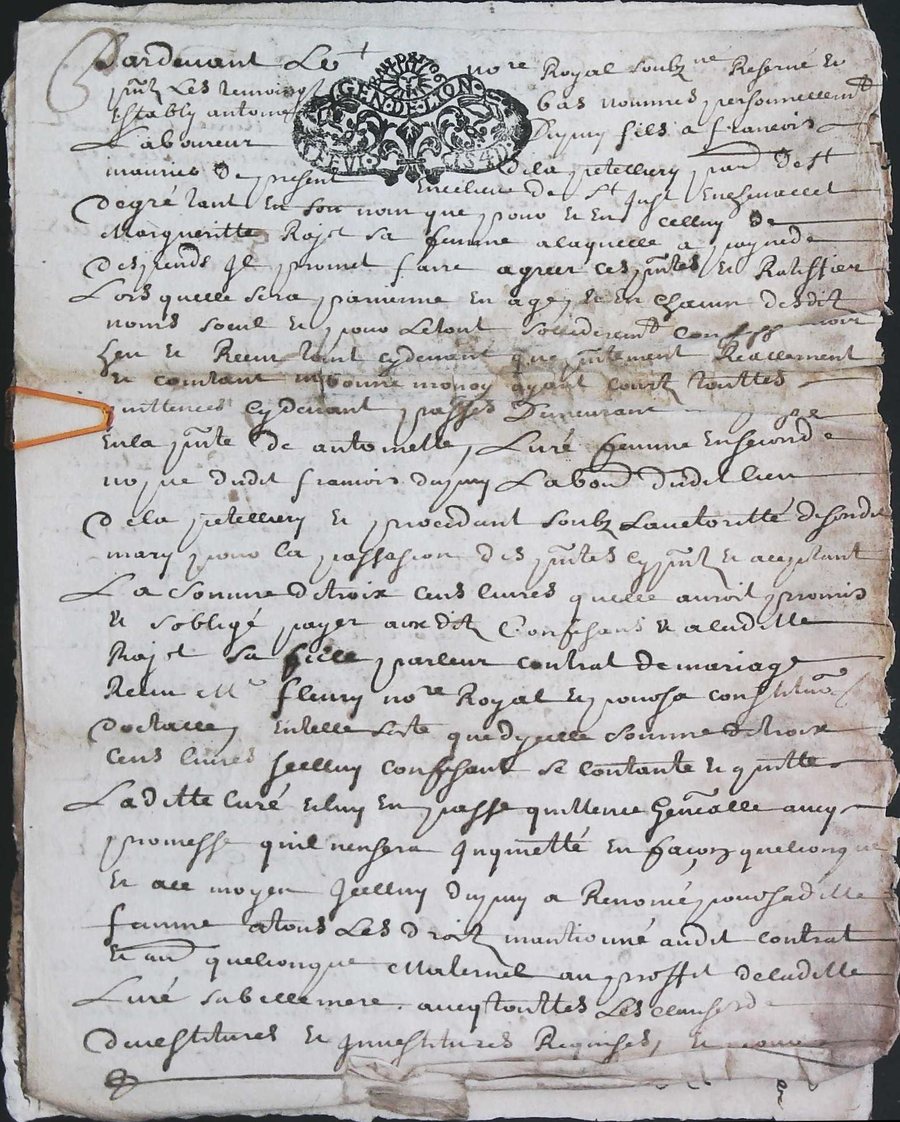 Pardevant Le
no.re Royal soubz.ne Reservé et
GEN·DE·LION·
p.nt Les temoins bas nommes personnellem.t
Estably antoine Dupuy fils a francois
Laboureur dela petelliery par.de de St
maurice de present de St Just Enchevallet
Degré tant En son nom que pour et En celluy de
Margueritte Rajot sa femme alaquelle a
promet faire agreer ces p.ntes et Ratiffier
Lors quelle sera parvenue En age, et En chacun desdit
noms seul et pour Letout solidairem.t
heu et Receu tant cydevant que p.ntement Reallement
Et contant En bonne monoy ayant court touttes
quittences cydevant passés Demeurant
Enla p.nte de antoinette, Curé femme Ensecond
nopce dudit francois dupuy Labou.r dudit lieu
dela petelliery et procedant soubz Lauctoritté desondit
mary pour la passasion des p.ntes cy p.nt et aceptant
La somme detroix cens livres quelle auroit promis
et sobligé payer auxdit Confesans et aladitte
Rajot sa fille parleur contrat de mariage
Receu M.e fleury no.re Royal Et pour sa constitu.on
dotalle, Entelle sorte que dycelle somme detroix
Cens livres Jcelluy confesant se contante et quitte
Laditte Curé Et luy En passe quittence Gen.alle avecq
promesse quil nensera Jnquietté En façon quelconque
Et ace moyen Jcelluy dupuy a Renoncé pour saditte
famme atous Les droit mantionné audit contrat
Et au.e quelconque Maternel au proffit deladitte
Curé sabellemere avecq touttes Les clauses de
devestitures et Jnvestitures Requises, et